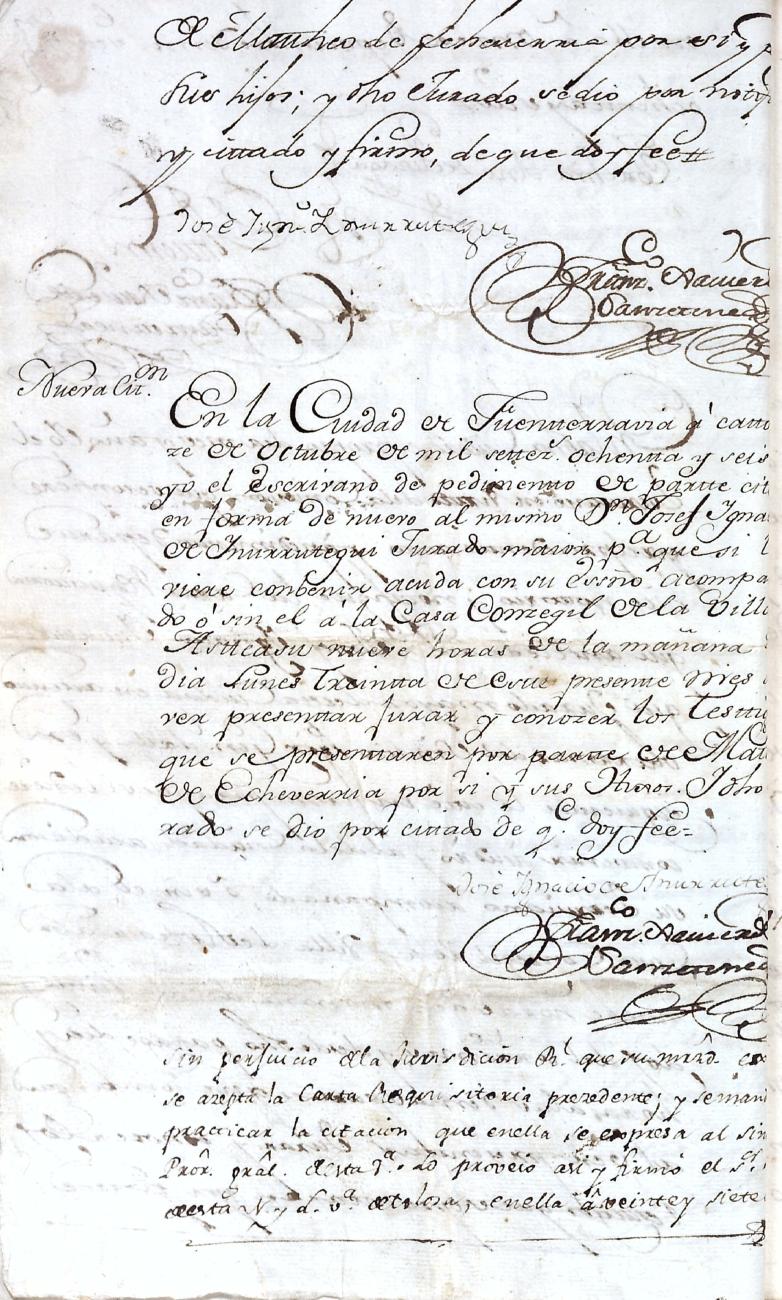 de Matheo de Echeverria por si y
sus hijos; y dho Jurado se dio por notif
y cittado y firmo, de que doy fee
José Ygn.º Ynurrutegui
Franz.co Xavier
Sanzetenea
Nueva Cit.on
En la Ciudad de Fuenterravia á cator
ze de Octubre de mil setez.s ochenta y seis
yo el Escrivano de pedimento de partte cit
en forma de nuevo al mismo Dn. Josef Igna
de Inurrutegui Jurado maior p.a que si l
viere combenir acuda con su Essno Acompa
do ó sin el á la Casa Conzegil de la Villa
Astteasu nueve horas de la mañana
dia Lunes treintta de este presente mes
ver presenttar jurar y conozer los testti
que se presenttaren por partte de Mat
de Echeverria por si y sus Hijos. I dho
rado se dio por cittado de q.e doy fee=
José Ignacio de Inurrute
Franz.co Xavier de
Sanzetenea
sin perjuicio de la Jurisdicion Rl. que su mrd. ex
se azepta la Carta Requisitoria prezedente; y se man
practicar la citacion que enella se expresa al sin
Pror. gral. de esta v.a Lo proveio asi y firmó el s.r
de esta N. y L. v.a de tolosa, enella á veinte y siete